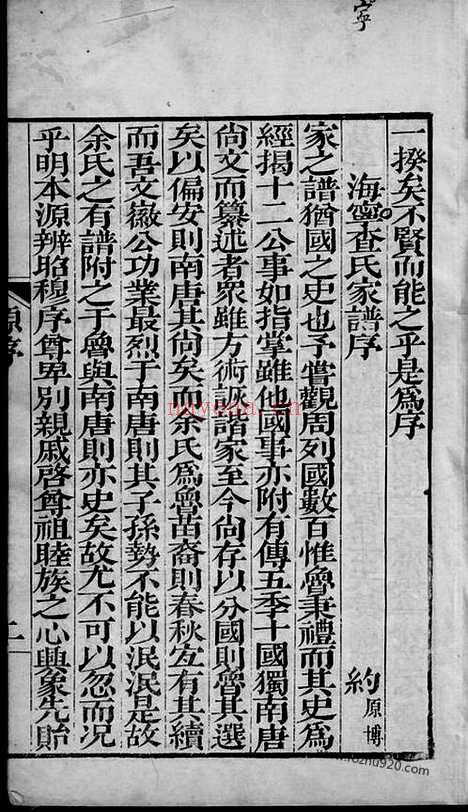 寧
一揆矣不賢而能之乎是為序
海寧查氏家譜序
約 原博
家之譜猶國之史也予嘗觀周列國數百惟魯秉禮而其史為
經揭十二公事如指掌雖他國事亦附有傳五季十國獨南唐
尚文而纂述者衆雖方術詼諧家至今尚存以分國則魯其選
矣以偏安則南唐其尚矣而余氏為魯苗裔則春秋宜有其續
而吾文徽公功業最烈于南唐則其子孫勢不能以泯泯是故
余氏之有譜附之于魯與南唐則亦史矣故尤不可以忽而況
乎明本源辨昭穆序尊卑別親戚啓尊祖睦族之心與象先貽
原序
二
nayona.cn
www.fozhu920.com